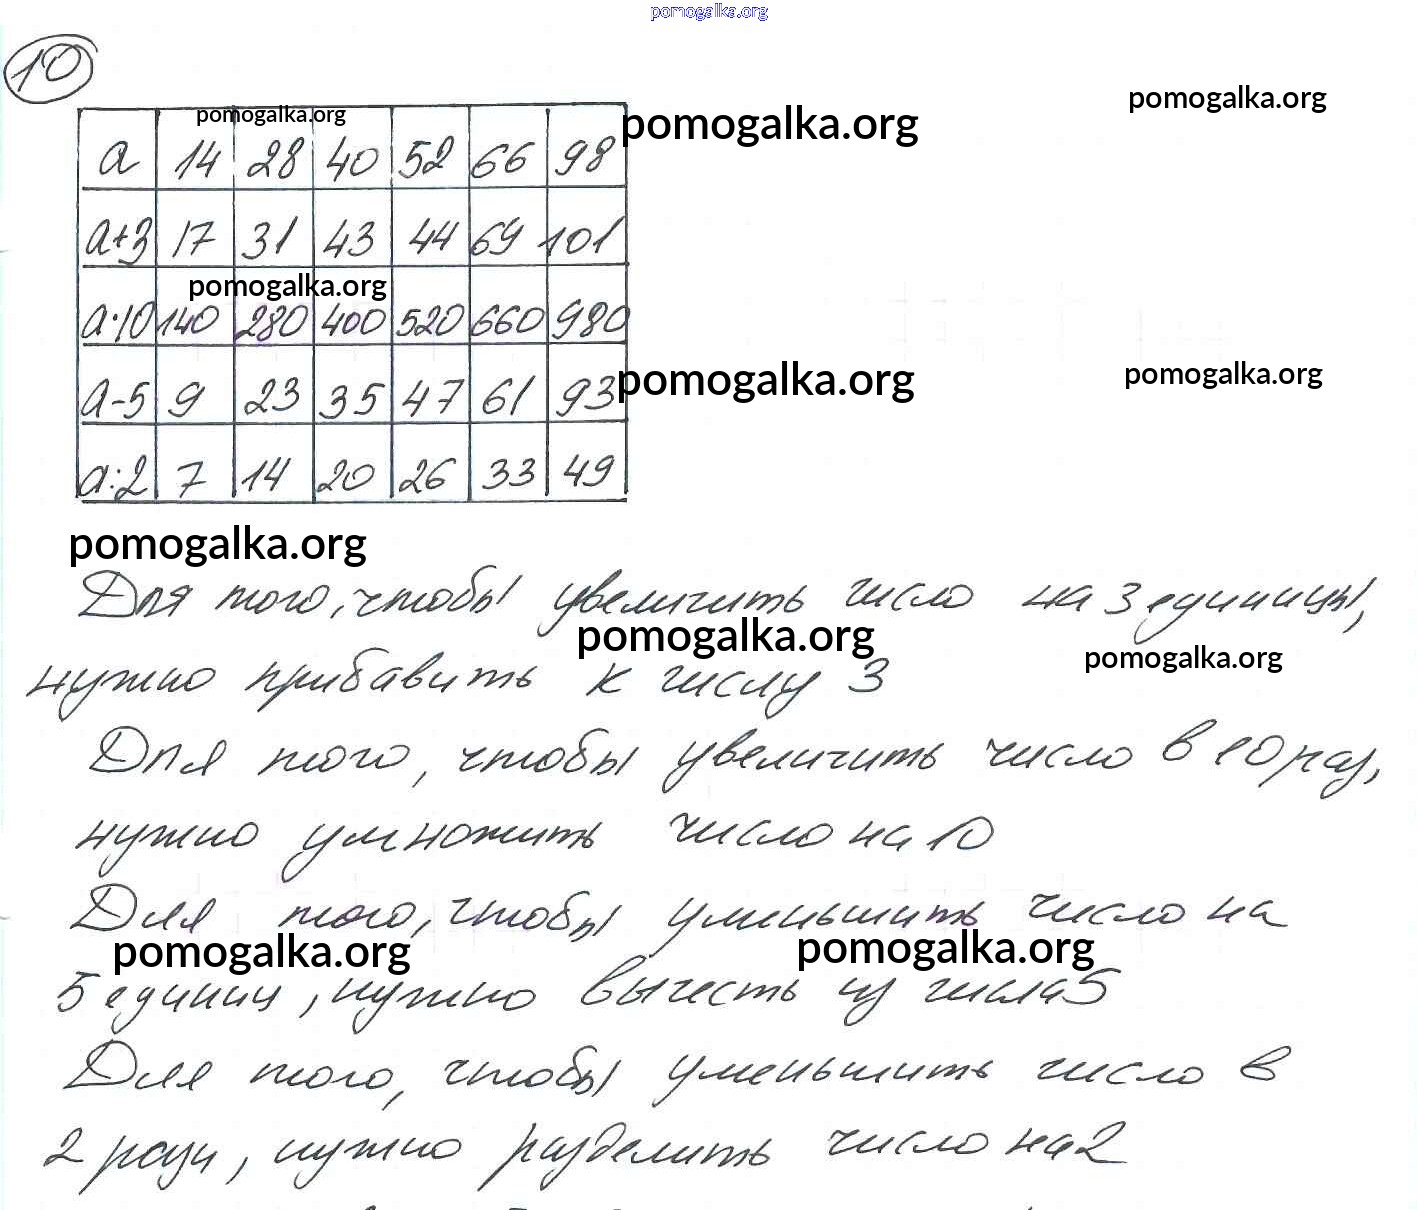 pomogalka.org
10
pomogalka.org
pomogalka.org
pomogalka.org
a 14 28 40 52 66 98
a+3 17 31 43 44 69 101
pomogalka.org
a·10 140 280 400 520 660 980
pomogalka.org
pomogalka.org
a-5 9 23 35 47 61 93
a:2 7 14 20 26 33 49
pomogalka.org
Для того, чтобы увеличить число на 3 единицы,
pomogalka.org
pomogalka.org
нужно прибавить к числу 3
Для того, чтобы увеличить число в 10 раз,
нужно умножить число на 10
Для того, чтобы уменьшить число на
pomogalka.org
pomogalka.org
5 единиц, нужно вычесть из числа 5
Для того, чтобы уменьшить число в
2 раза, нужно разделить число на 2